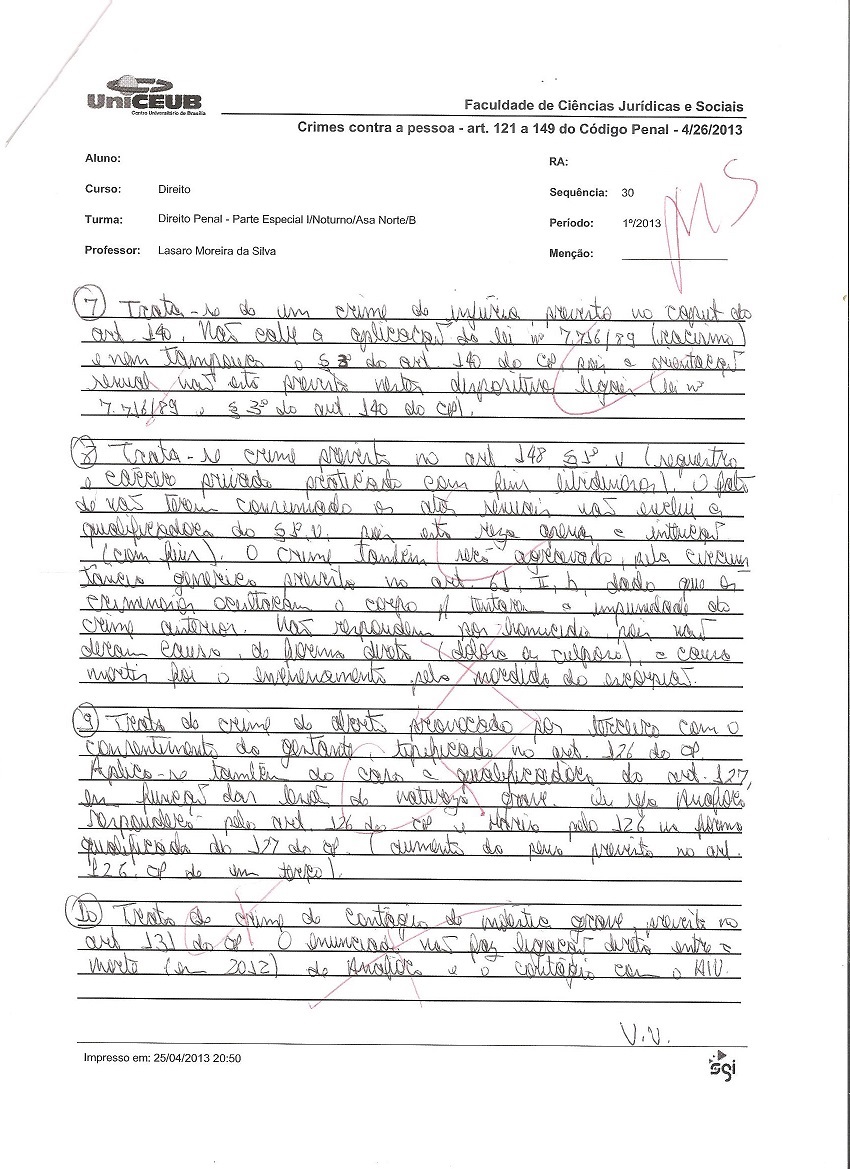 UniCEUB
Centro Universitário de Brasília
Faculdade de Ciências Jurídicas e Sociais
Crimes contra a pessoa - art. 121 a 149 do Código Penal - 4/26/2013
Aluno:
RA:
Curso: Direito
Sequência: 30
Turma: Direito Penal - Parte Especial I/Noturno/Asa Norte/B
Período: 1º/2013
Professor: Lasaro Moreira da Silva
Menção:
MS
7 Trata-se de um crime de injúria, previsto no caput do
art. 140. Não cabe a aplicação da lei nº 7.716/89 (racismo)
e nem tampouco o § 3º do art 140 do CP, pois a orientação
sexual não está prevista nestes dispositivos legais (lei nº
7.716/89 e § 3º do art. 140 do CP).
8 Trata-se crime previsto no art 148 § 1º, V (sequestro
e cárcere privado praticado com fins libidinosos). O fato
de não terem consumado os atos sexuais não exclui a
qualificadora do § 1º, V, pois esta reza apenas a intenção
(com fins). O crime também será agravado, pela circuns
tância genérica prevista no art 61, II, b, dado que os
criminosos ocultaram o corpo p/ tentarem a impunidade do
crime anterior. Não respondem por homicídio, pois não
deram causa, de forma direta (dolosa ou culposa), a causa
mortis foi o envenenamento pela mordida do escorpião.
9 Trata de crime de aborto provocado por terceiro com o
consentimento da gestante, tipificado no art. 126 do CP.
Aplica-se também ao caso a qualificadora do art. 127,
em função das lesões de natureza grave. Ou seja
responderá pelo art. 126 do CP e Mário pelo 126 na forma
qualificada do 127 do CP. (aumento da pena prevista no art.
126 CP de um terço).
10 Trata de crime de contágio de moléstia grave, previsto no
art 131 do CP. O enunciado não faz ligação direta entre a
morte (em 2012) de e o contágio com o HIV.
V.V.
Impresso em: 25/04/2013 20:50
sgi